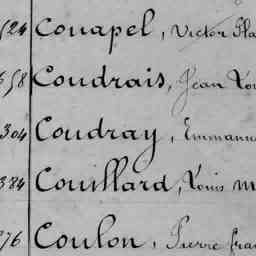 524 Couapel, Victor Pla
658 Coudrais, Jean Lou
304 Coudray, Emmanu
384 Couillard, Louis M
276 Coulon, Pierre fran